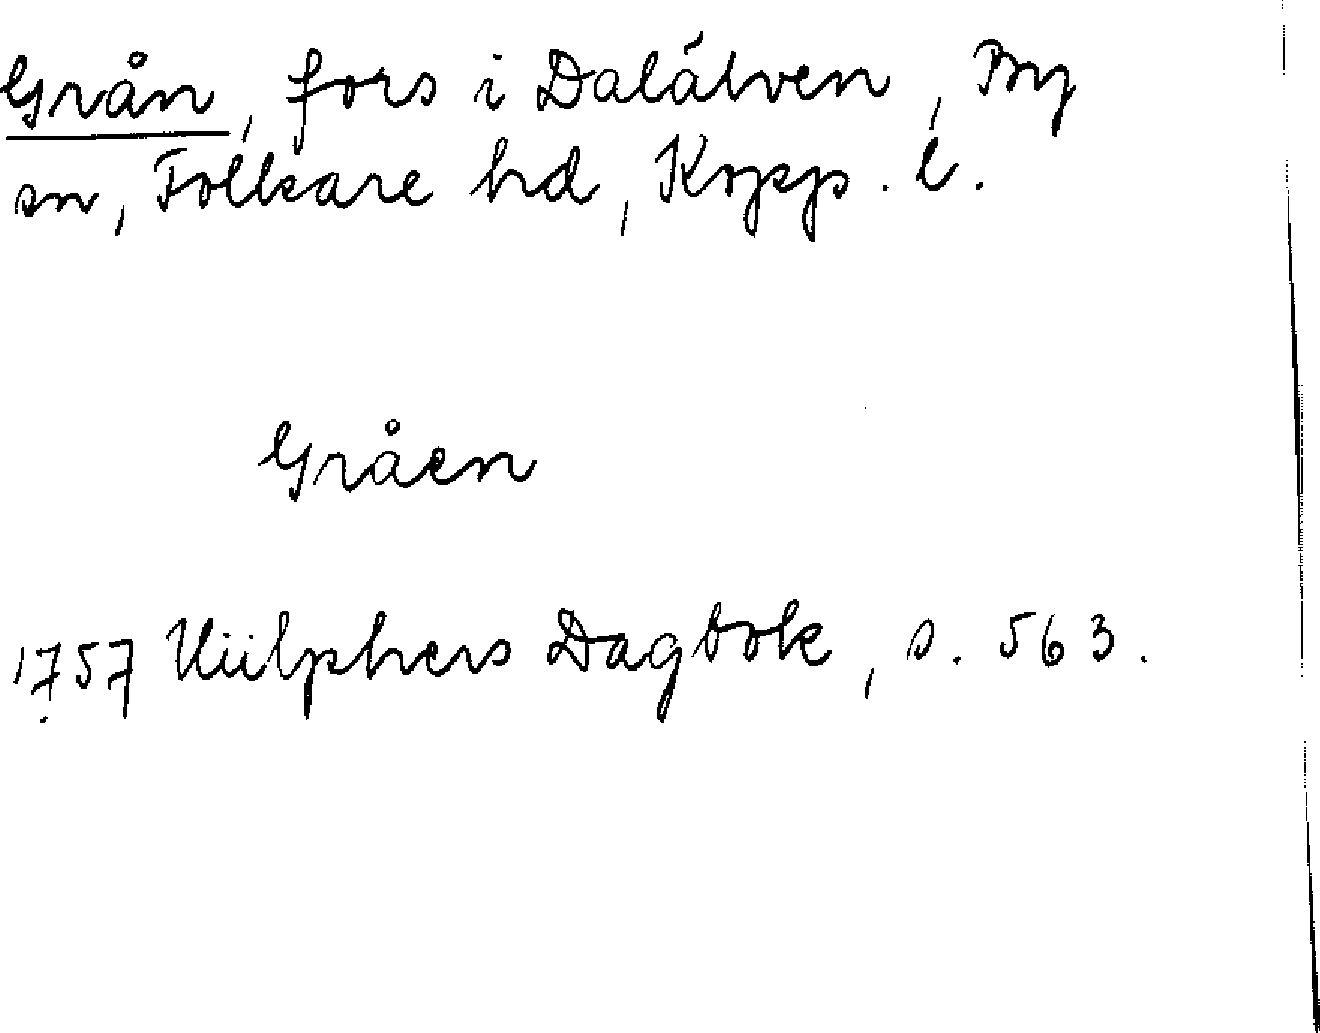 Grån, fors i Dalälven, By
sn, Folkare hd, Kopp. l.
Gråen
1757 Hülphers Dagbok, s. 563.